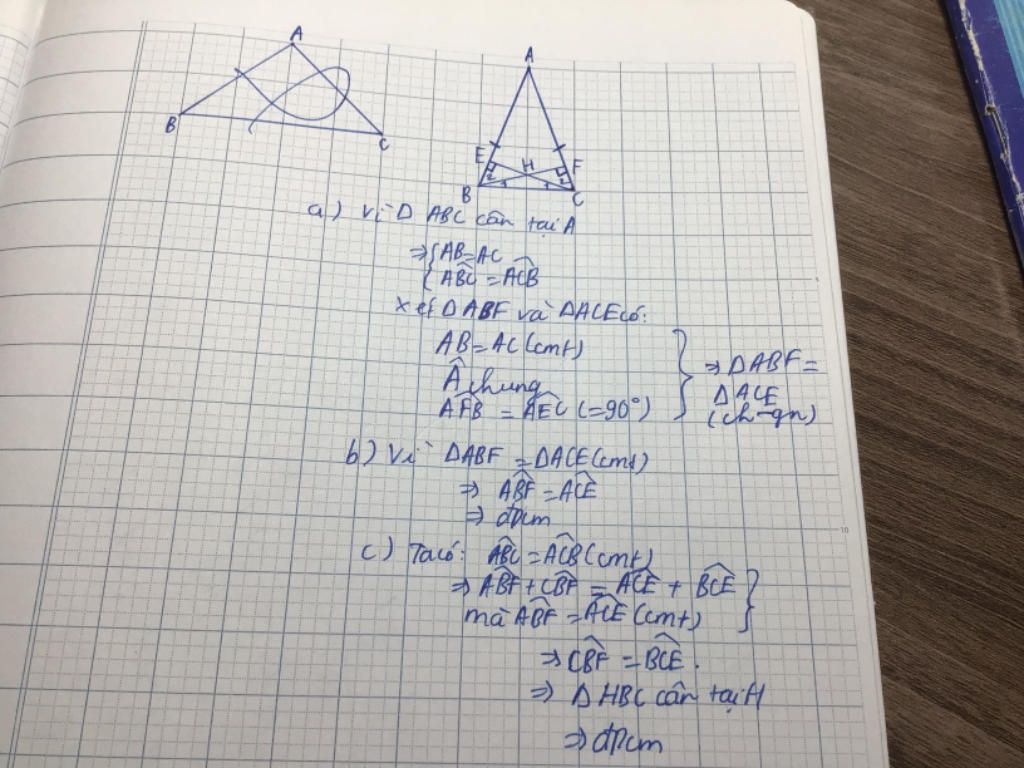 A
B
C
A
E
H
F
B
C
a) Vì Δ ABC cân tại A
⇒ { AB = AC
{ ABC^ = ACB^
Xét ΔABF và ΔACE có:
AB = AC (cmt)
Â chung
AFB^ = AEC^ (=90°)
} ⇒ ΔABF =
ΔACE
(ch-gn)
b) Vì ΔABF = ΔACE (cmt)
⇒ ABF^ = ACE^
⇒ đpcm
c) Ta có: ABC^ = ACB^ (cmt)
⇒ ABF^ + CBF^ = ACE^ + BCE^ }
mà ABF^ = ACE^ (cmt)
⇒ CBF^ = BCE^.
⇒ Δ HBC cân tại H
⇒ đpcm
10